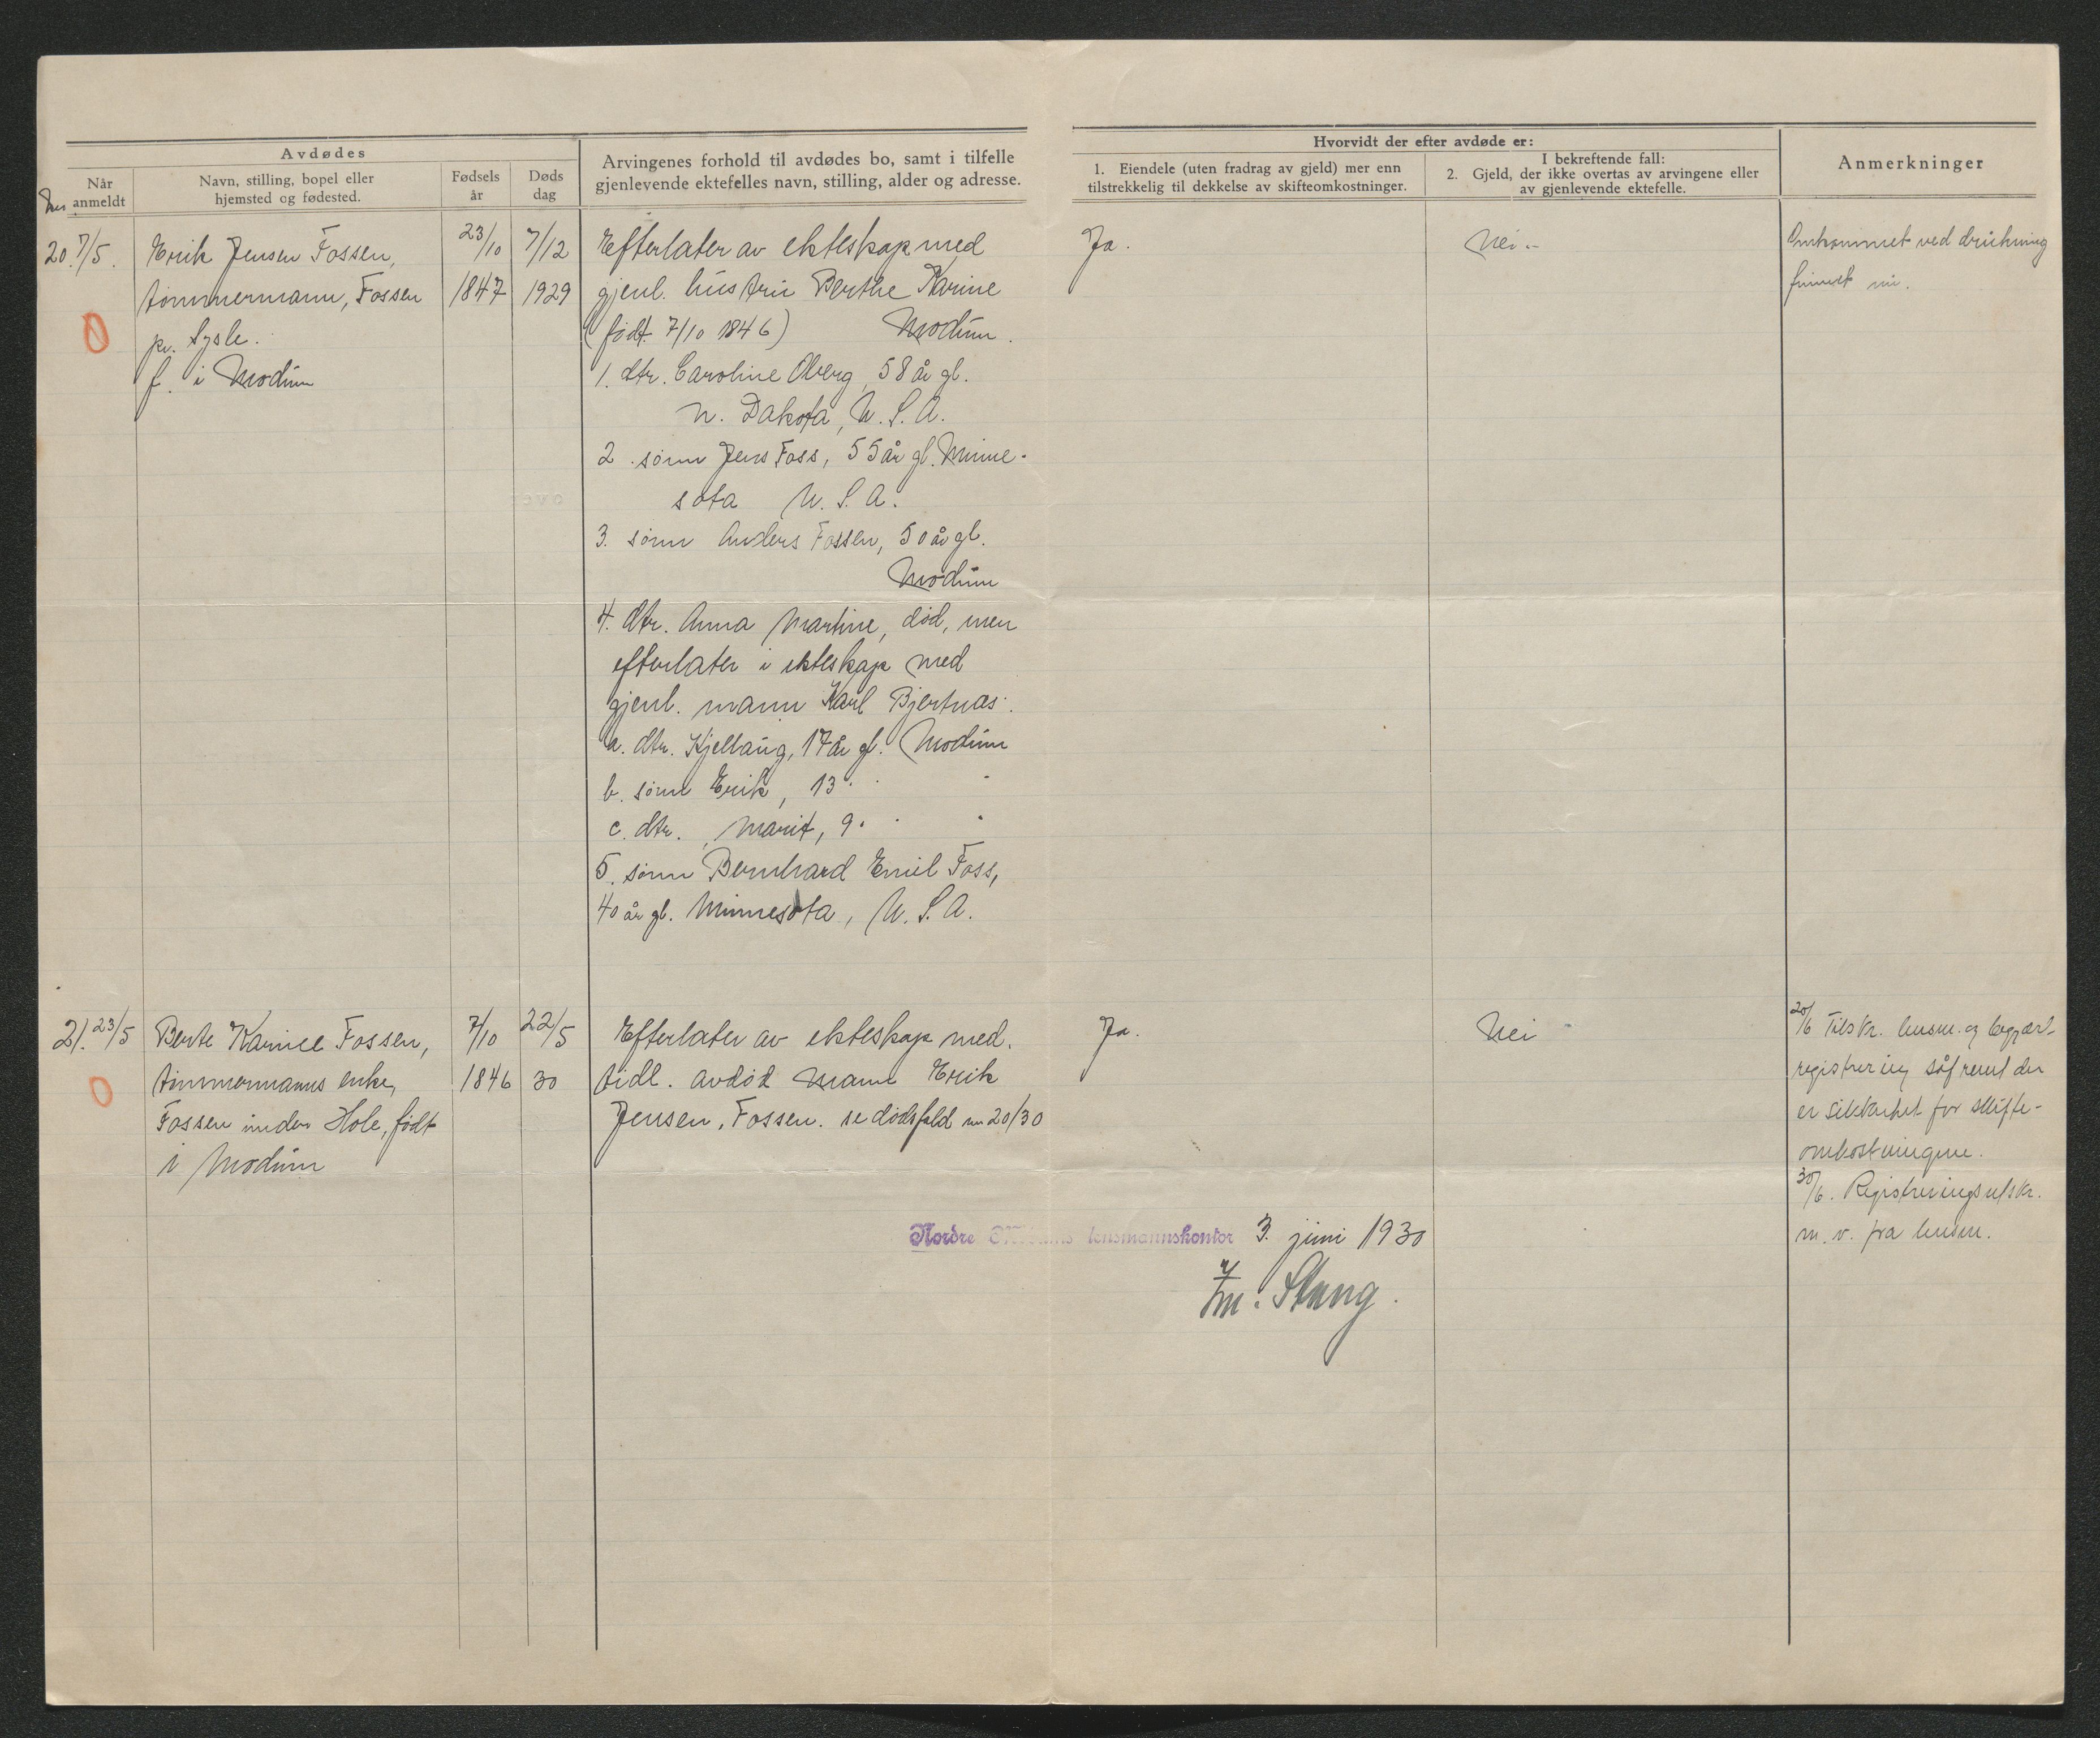 Avdødes
Når anmeldt
Navn, stilling, bopel eller
hjemsted og fødested.
Fødsels
år
Døds
dag
Arvingenes forhold til avdødes bo, samt i tilfelle
gjenlevende ektefelles navn, stilling, alder og adresse.
Hvorvidt der efter avdøde er:
1. Eiendele (uten fradrag av gjeld) mer enn
tilstrekkelig til dekkelse av skifteomkostninger.
I bekreftende fall:
2. Gjeld, der ikke overtas av arvingene eller
av gjenlevende ektefelle.
Anmerkninger
20. 7/5.
Erik Jensen Fossen,
tømmermann, Fossen
pr. Sysle.
f. i Modum
23/10
1847
7/12
1929
Efterlater av ekteskap med
gjenl. hustru Berthe Karine
(født 7/10 1846) Modum.
1. dtr. Caroline Oberg, 58 år gl.
N. Dakota, U.S.A.
2. sønn Jens Foss, 55 år gl. Minne-
sota U.S.A.
3. sønn Anders Fossen, 50 år gl.
Modum
4. dtr. Anna Martine, død, men
efterlater i ekteskap med
gjenl. mann Karl Bjertnæs.
a. dtr. Kjellaug, 17 år gl. Modum
b. sønn Erik, 13 " "
c. dtr. Marit, 9 " "
5. sønn Bernhard Emil Foss,
40 år gl. Minnesota, U.S.A.
Ja.
Nei.
Omkommet ved drukning
funnet nu.
0
21. 23/5
Berte Karine Fossen,
tømmermanns enke,
Fossen under Hole, født
i Modum
7/10
1846
22/5
30
Efterlater av ekteskap med
tidl. avdød mann Erik
Jensen, Fossen. se dødsfald nr 20/30
Ja.
Nei
20/6 Tilskr. lensm. og begjært
registrering såfremt der
er sikkerhet for skifte-
omkostningene.
30/6. Registreringsutskr.
m. v. fra lensm.
0
Nordre Modums lensmannskontor 3. juni 1930
Stang.